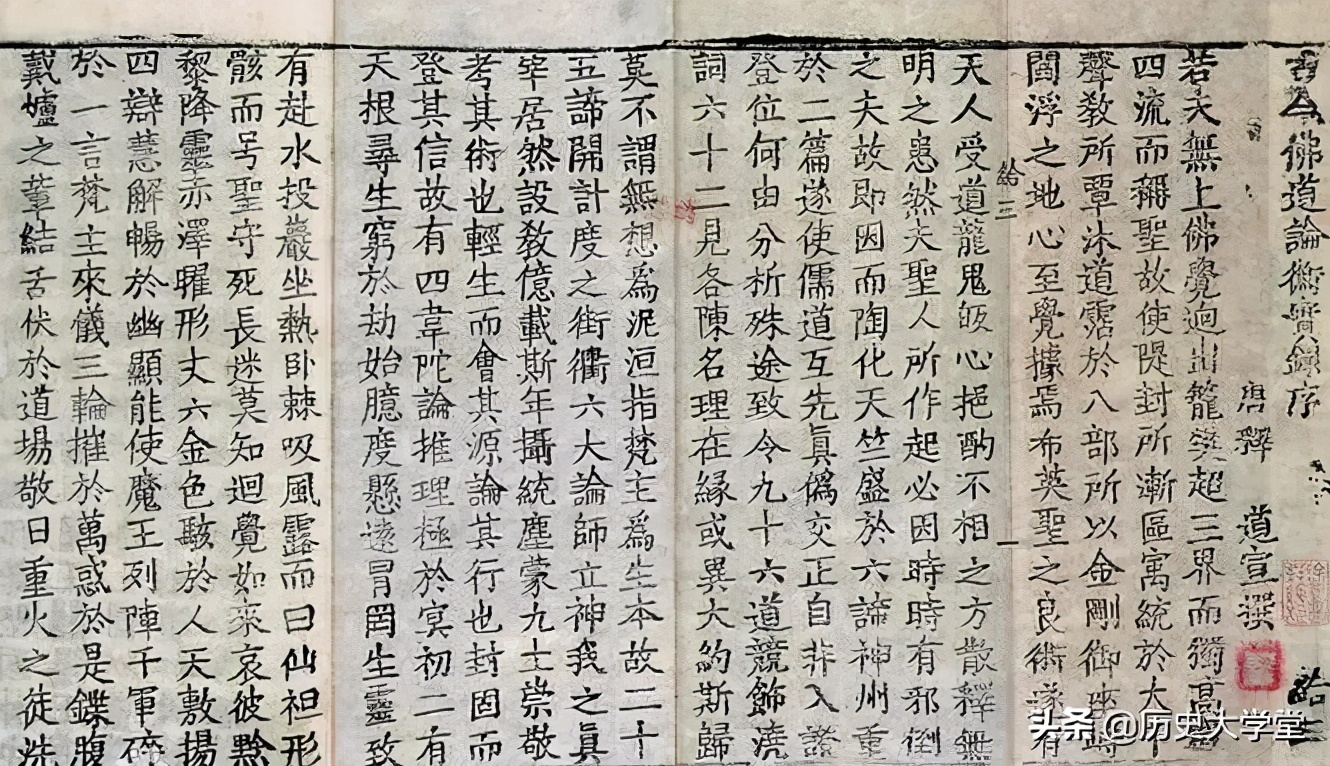 古今佛道論衡實錄序
唐釋 道宣撰 給三
若夫無上佛覺迥出籠樊超三界而獨高
四流而稱聖故使隄封所漸區寓統於大千
聲教所覃沐道霑於八部所以金剛御座峙
閻浮之地心至覺據焉布英聖之良術遂有
給三 一
天人受道龍鬼皈心挹酌不相之方散釋無
明之患然夫聖人所作起必因時時有邪倒
之夫故即因而陶化天竺盛於六諦神州重
於二篇遂使儒道互先真偽交正自非入證
登位何由分析殊途致令九十六道競飾澆
詞六十二見各陳名理在緣或異大約斯歸
莫不謂無想為泥洹指梵主為生本故二十
五諦開計度之街衢六大論師立神我之真
宰居然設教億載斯年攝統塵蒙九土崇敬
考其術也輕生而會其源論其行也封固而
登其信故有四韋陀論推理極於冥初二有
天根尋生窮於劫始臆度懸遠冒罔生靈致
有赴水投巖坐熱臥棘吸風露而曰仙袒形
骸而号聖守死長迷莫知迴覺如來哀彼黔
黎降靈赤澤曜形丈六金色駭於人天敷揚
四辯慧解暢於幽顯能使魔王列陣千軍碎
於一言梵主來儀三輪摧於萬惑於是鍱腹
戴爐之輩結舌伏於道場敬日重火之徒洗
头条 @历史大学堂